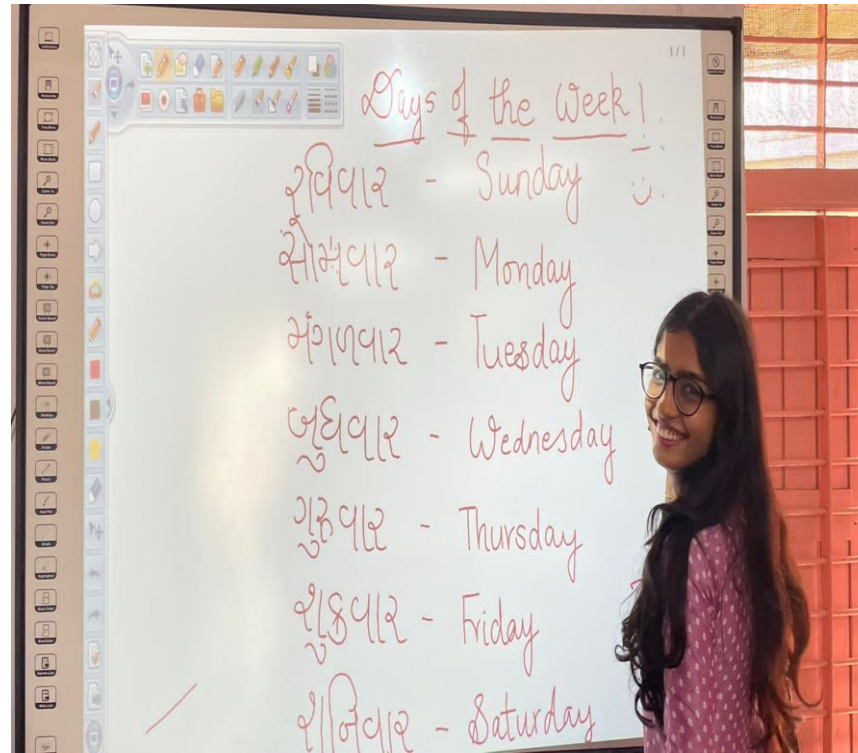 1/1
Days of the Week!
રવિવાર - Sunday
સોમવાર - Monday
મંગળવાર - Tuesday
બુધવાર - Wednesday
ગુરુવાર - Thursday
શુક્રવાર - Friday
શનિવાર - Saturday